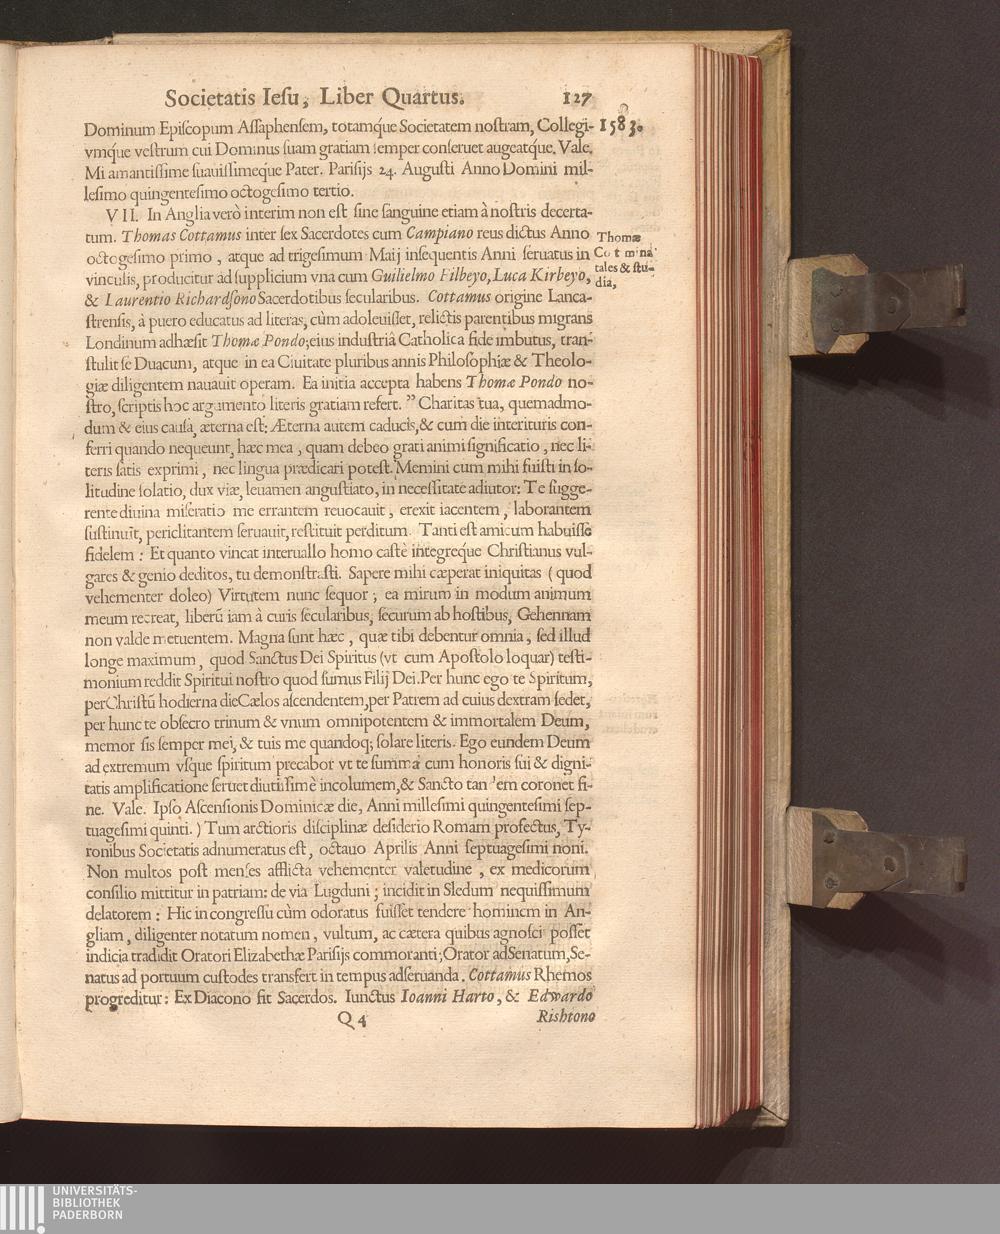 Societatis Iesu, Liber Quartus. 127
1583.
Dominum Episcopum Assaphensem, totamq́ue Societatem nostram, Collegi-
vmq́ue vestrum cui Dominus suam gratiam semper conseruet augeatq́ue. Vale.
Mi amantissime suauissimeq́ue Pater. Parisijs 24. Augusti Anno Domini mil-
lesimo quingentesimo octogesimo tertio.
VII. In Anglia verò interim non est sine sanguine etiam à nostris decerta-
tum. Thomas Cottamus inter sex Sacerdotes cum Campiano reus dictus Anno
octogesimo primo, atque ad trigesimum Maij insequentis Anni seruatus in
vinculis, producitur ad supplicium vna cum Guilielmo Filbeyo, Luca Kirbeyo,
& Laurentio Richardsono Sacerdotibus secularibus. Cottamus origine Lanca-
strensis, à puero educatus ad literas, cùm adoleuisset, relictis parentibus migrans
Londinum adhæsit Thomæ Pondo; eius industriâ Catholica fide imbutus, tran-
stulit se Duacum, atque in ea Ciuitate pluribus annis Philosophiæ & Theolo-
giæ diligentem nauauit operam. Ea initia accepta habens Thomæ Pondo no-
stro, scriptis hoc argumento literis gratiam refert. ” Charitas tua, quemadmo-
dum & eius causa, æterna est: Æterna autem caducis, & cum die interituris con-
ferri quando nequeunt, hæc mea, quam debeo grati animi significatio, nec li-
teris satis exprimi, nec lingua prædicari potest. Memini cum mihi fuisti in so-
litudine solatio, dux viæ, leuamen angustiato, in necessitate adiutor: Te sugge-
rente diuina miseratio me errantem reuocauit, erexit iacentem, laborantem
sustinuit, periclitantem seruauit, restituit perditum. Tanti est amicum habuisse
fidelem: Et quanto vincat interuallo homo castè integreq́ue Christianus vul-
gares & genio deditos, tu demonstrasti. Sapere mihi cæperat iniquitas (quod
vehementer doleo) Virtutem nunc sequor; ea mirum in modum animum
meum recreat, liberū iam à curis secularibus, securum ab hostibus, Gehennam
non valde metuentem. Magna sunt hæc, quæ tibi debentur omnia, sed illud
longe maximum, quod Sanctus Dei Spiritus (vt cum Apostolo loquar) testi-
monium reddit Spiritui nostro quod sumus Filij Dei. Per hunc ego te Spiritum,
per Christū hodierna die Cælos ascendentem, per Patrem ad cuius dextram sedet,
per hunc te obsecro trinum & vnum omnipotentem & immortalem Deum,
memor sis semper mei, & tuis me quandoq; solare literis. Ego eundem Deum
ad extremum vsque spiritum precabor vt te summa cum honoris sui & digni-
tatis amplificatione seruet diutissimè incolumem, & Sancto tandem coronet fi-
ne. Vale. Ipso Ascensionis Dominicæ die, Anni millesimi quingentesimi sep-
tuagesimi quinti.) Tum arctioris disciplinæ desiderio Romam profectus, Ty-
ronibus Societatis adnumeratus est, octauo Aprilis Anni septuagesimi noni.
Non multos post menses afflicta vehementer valetudine, ex medicorum
consilio mittitur in patriam: de via Lugduni; incidit in Sledum nequissimum
delatorem: Hic in congressu cùm odoratus fuisset tendere hominem in An-
gliam, diligenter notatum nomen, vultum, ac cætera quibus agnosci posset
indicia tradidit Oratori Elizabethæ Parisijs commoranti; Orator ad Senatum, Se-
natus ad portuum custodes transfert in tempus adseruanda. Cottamus Rhemos
progreditur: Ex Diacono fit Sacerdos. Iunctus Ioanni Harto, & Edwardo
Q 4 Rishtono
Thomæ
Cottami na-
tales & stu-
dia,
UNIVERSITÄTS-
BIBLIOTHEK
PADERBORN